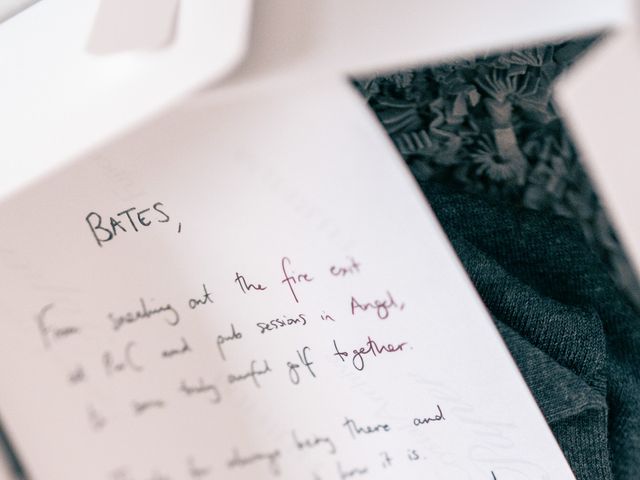 BATES,
From sneaking out the fire exit
at PwC and pub sessions in Angel,
to some truly awful golf together.
for always being there and
how it is.